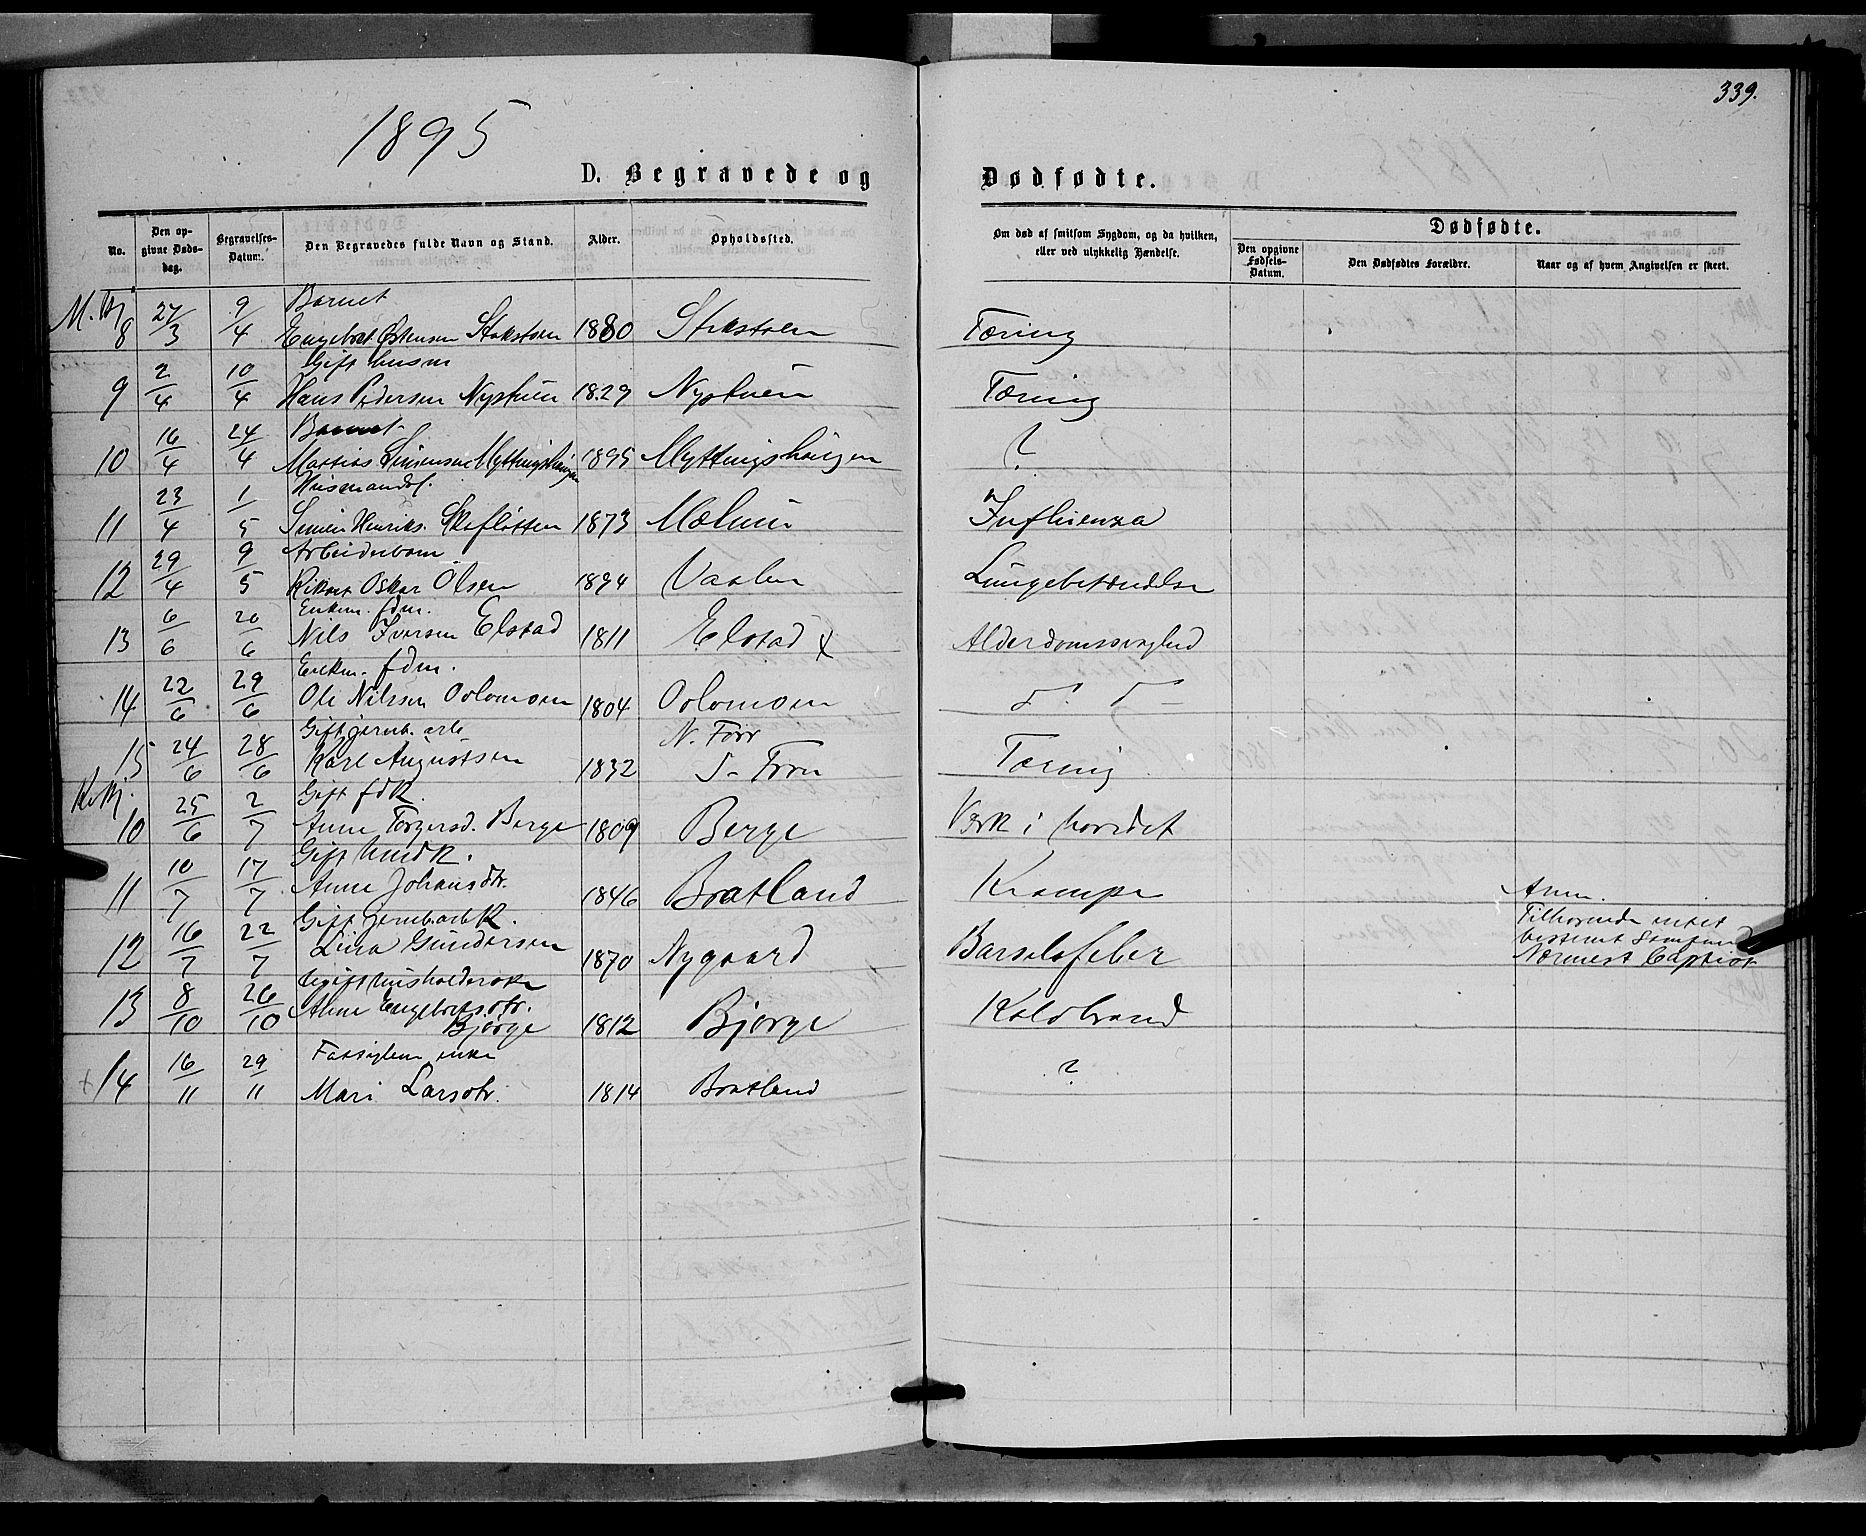 339.
1895
D. Begravede og Dødfødte.
No.
Den opgivne Dødsdag.
Begravelses-Datum.
Den Begravedes fulde Navn og Stand.
Alder.
Opholdssted.
Om død af smitsom Sygdom, og da hvilken, eller ved ulykkelig Hændelse.
Dødfødte.
Den opgivne Fødsels-Datum.
Den Dødfødtes Forældre.
Naar og af hvem Angivelsen er skeet.
M. Kj. Barnet
8 27/3 9/4 Engebret Østensen Stokstøen 1880 Stokstøen Tæring
Gift husm
9 2/4 10/4 Hans Pedersen Nystuen 1829 Nystuen Tæring
Barnet
10 16/4 24/4 Mattias Simensen Myttingshaugen 1895 Myttingshaugen ?
Husmandsf.
11 23/4 1/5 Simen Henriks. Skefløtten 1873 Mælum Influenza
Arbeiderbarn
12 29/4 9/5 Rikart Oskar Olsen 1894 Vaalen Lungebetændelse
Enkem. fdm.
13 6/6 20/6 Nils Iversen Elstad 1811 Elstad x Alderdomssvaghed
Enkem. fdm.
14 22/6 29/6 Ole Nilsen Oolomoen 1804 Oolomoen d° d°
Gift jernb. arb N. Forr
15 24/6 28/6 Karl Augustsen 1832 S- Tæring
Kj. Gift fdk.
10 25/6 2/7 Anne Torgersd. Berge 1809 Berge Værk i hovedet
Gift hmdk.
11 10/7 17/7 Anne Johansdtr. 1846 Bratland Krampe
Gift jernbarbk. Anm.
12 16/7 22/7 Lina Gundersen 1870 Nygaard Barselsfeber Tilhørende intet
bestemt Samfund
Nærmest Baptist
Ugift husholderske
13 8/10 26/10 Anne Engebretsdtr. Bjørge 1812 Bjørge Koldbrand
Fattiglem enke
+ 14 16/11 29/11 Mari Larsdtr. 1814 Bratland ?